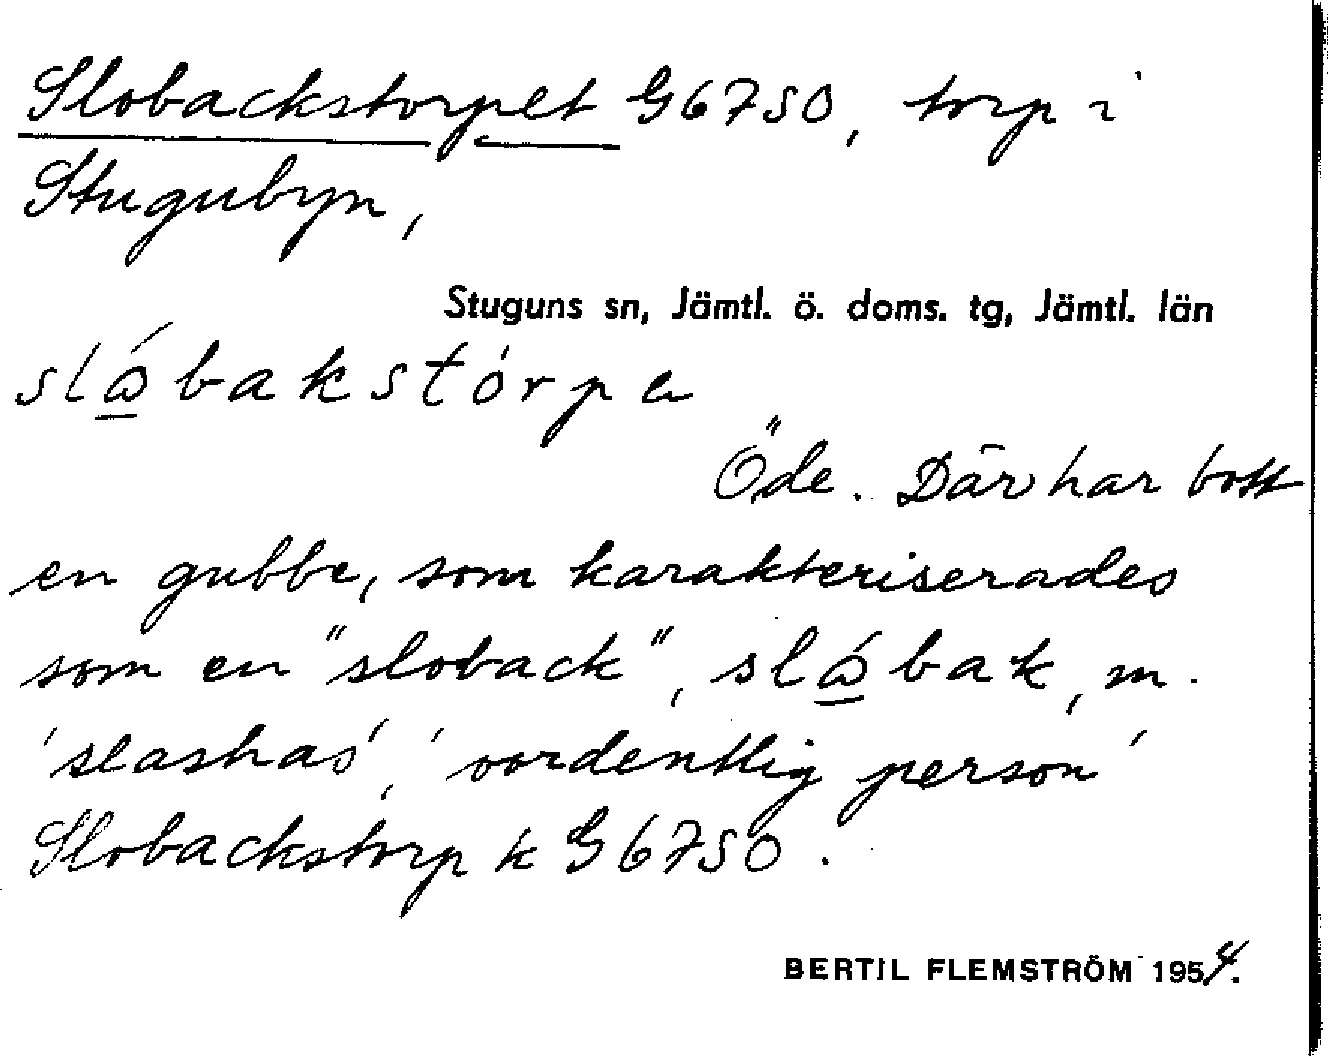 Slobackstorpet G6750, torp i
Stugubyn,
Stuguns sn, Jämtl. ö. doms. tg, Jämtl. län
slώbakstórpa
Öde. Där har bott
en gubbe, som karakteriserades
som en "sloback", slώbak, m.
'slashas', 'oordentlig person'
Slobackstorp k G6750.
BERTIL FLEMSTRÖM 1954.